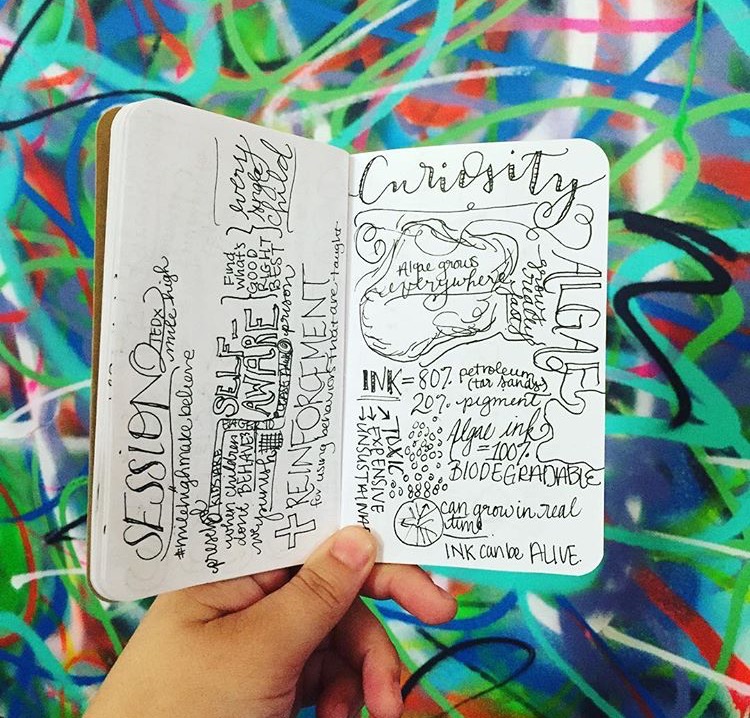 SESSION 2
TEDx
mile high
#milehighmakebelieve
KIDS ARE
SELF-
AWARE
when children
don't BEHAVE
we punish
Find
what's
GOOD
RIGHT
BEST
every
single
child
prison
+ REINFORCEMENT
for using behaviors that are taught.
Curiosity
Algae grows
everywhere
ALGAE
INK = 80% petroleum
(tar sands)
20% pigment
TOXIC
EXPENSIVE
Algae ink
= 100%
BIODEGRADABLE
can grow in real
time
INK can be ALIVE.